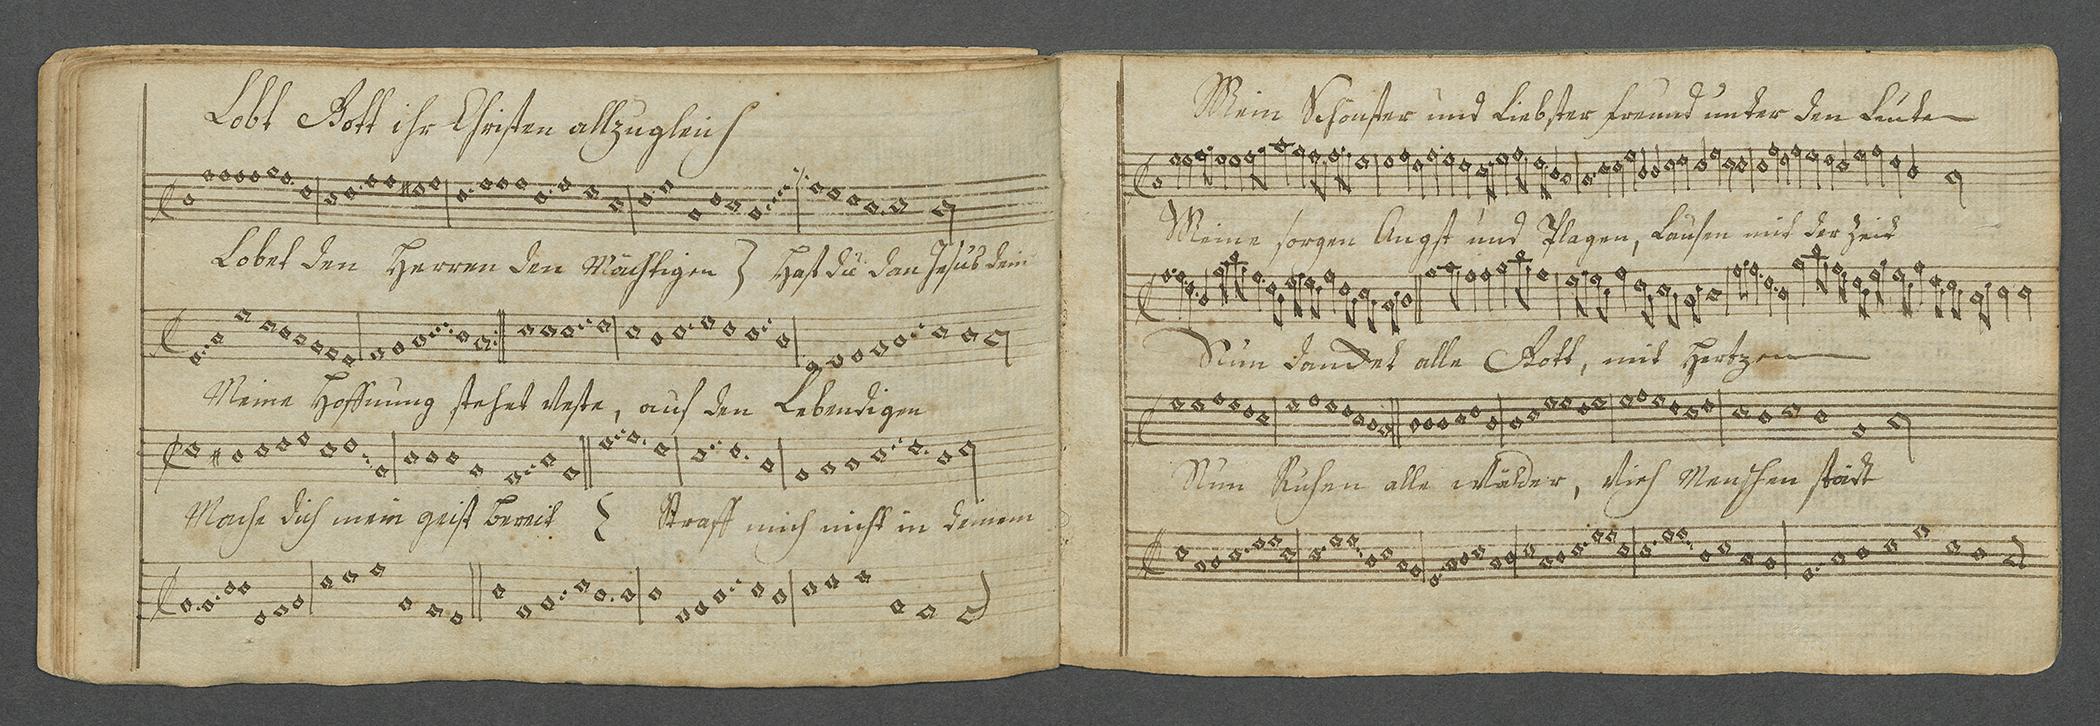 Lobt Gott ihr Christen allzugleich
Lobet den Herren den Mächtigen } Hast du dan Jesus dein
Meine Hoffnung stehet veste, auf den Lebendigen
Mache dich mein geist bereit { Straff mich nicht in deinem
Mein Schönster und Liebster freund unter den Leuten
Meine sorgen Angst und Plagen, Laufen mit der Zeit
Nun dancket alle Gott, mit Hertzen
Nun Ruhen alle Wälder, Vieh Menschen städt